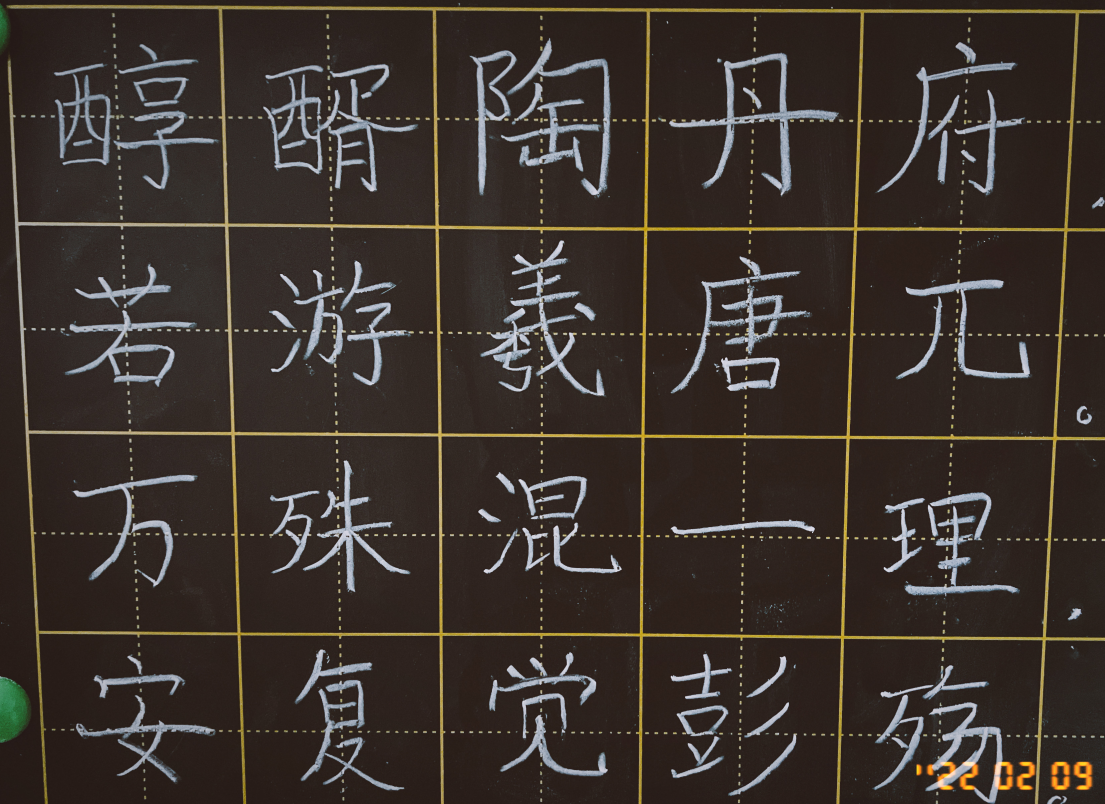 醇醑陶丹府,
若游羲唐兀。
万殊混一理,
安复觉彭殇。
'22 02 09